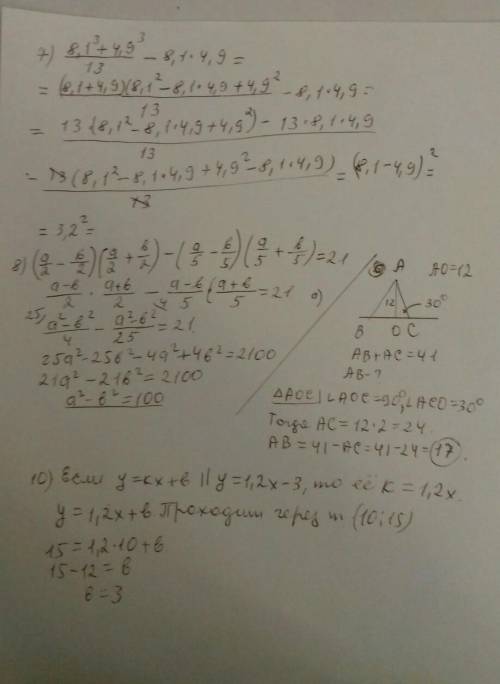 7) (8,1³ + 4,9³)/13 − 8,1 · 4,9 =
= (8,1 + 4,9)(8,1² − 8,1 · 4,9 + 4,9²)/13 − 8,1 · 4,9 =
= (13(8,1² − 8,1 · 4,9 + 4,9²) − 13 · 8,1 · 4,9)/13
= 13(8,1² − 8,1 · 4,9 + 4,9² − 8,1 · 4,9)/13 = (8,1 − 4,9)² =
= 3,2² =
8) (a/2 − b/2)(a/2 + b/2) − (a/5 − b/5)(a/5 + b/5) = 21
(a−b)/2 · (a+b)/2 − (a−b)/5 (a+b)/5 = 21
25/ (a²−b²)/4 − 4/ (a²−b²)/25 = 21
25a² − 25b² − 4a² + 4b² = 2100
21a² − 21b² = 2100
a² − b² = 100
9)
A AO=12
12 30°
B O C
AB + AC = 41
AB − ?
ΔAOC | ∠AOC = 90°, ∠ACO = 30°
Тогда AC = 12 · 2 = 24.
AB = 41 − AC = 41 − 24 = 17.
10) Если y = kx + b || y = 1,2x − 3, то её k = 1,2x.
y = 1,2x + b Проходит через т (10; 15)
15 = 1,2 · 10 + b
15 − 12 = b
b = 3